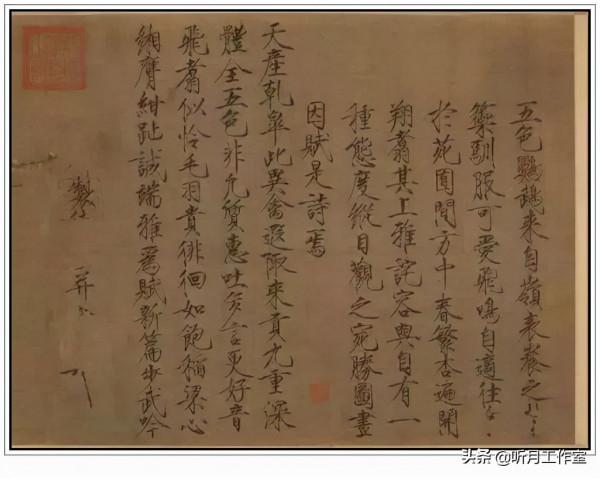 五色鸚鵡來自嶺表養之
籞馴服可愛飛鳴自適往
於苑囿間方中春繁杏遍開
翔翥其上雅詫容與自有一
種態度縱目觀之宛勝圖畫
因賦是詩焉
天產乾皋此異禽遐陬來貢九重深
體全五色非凡質惠吐多言更好音
飛翥似憐毛羽貴徘徊如飽稻粱心
緗膺紺趾誠端雅爲賦新篇步武吟
製
并
头条 @听月工作室